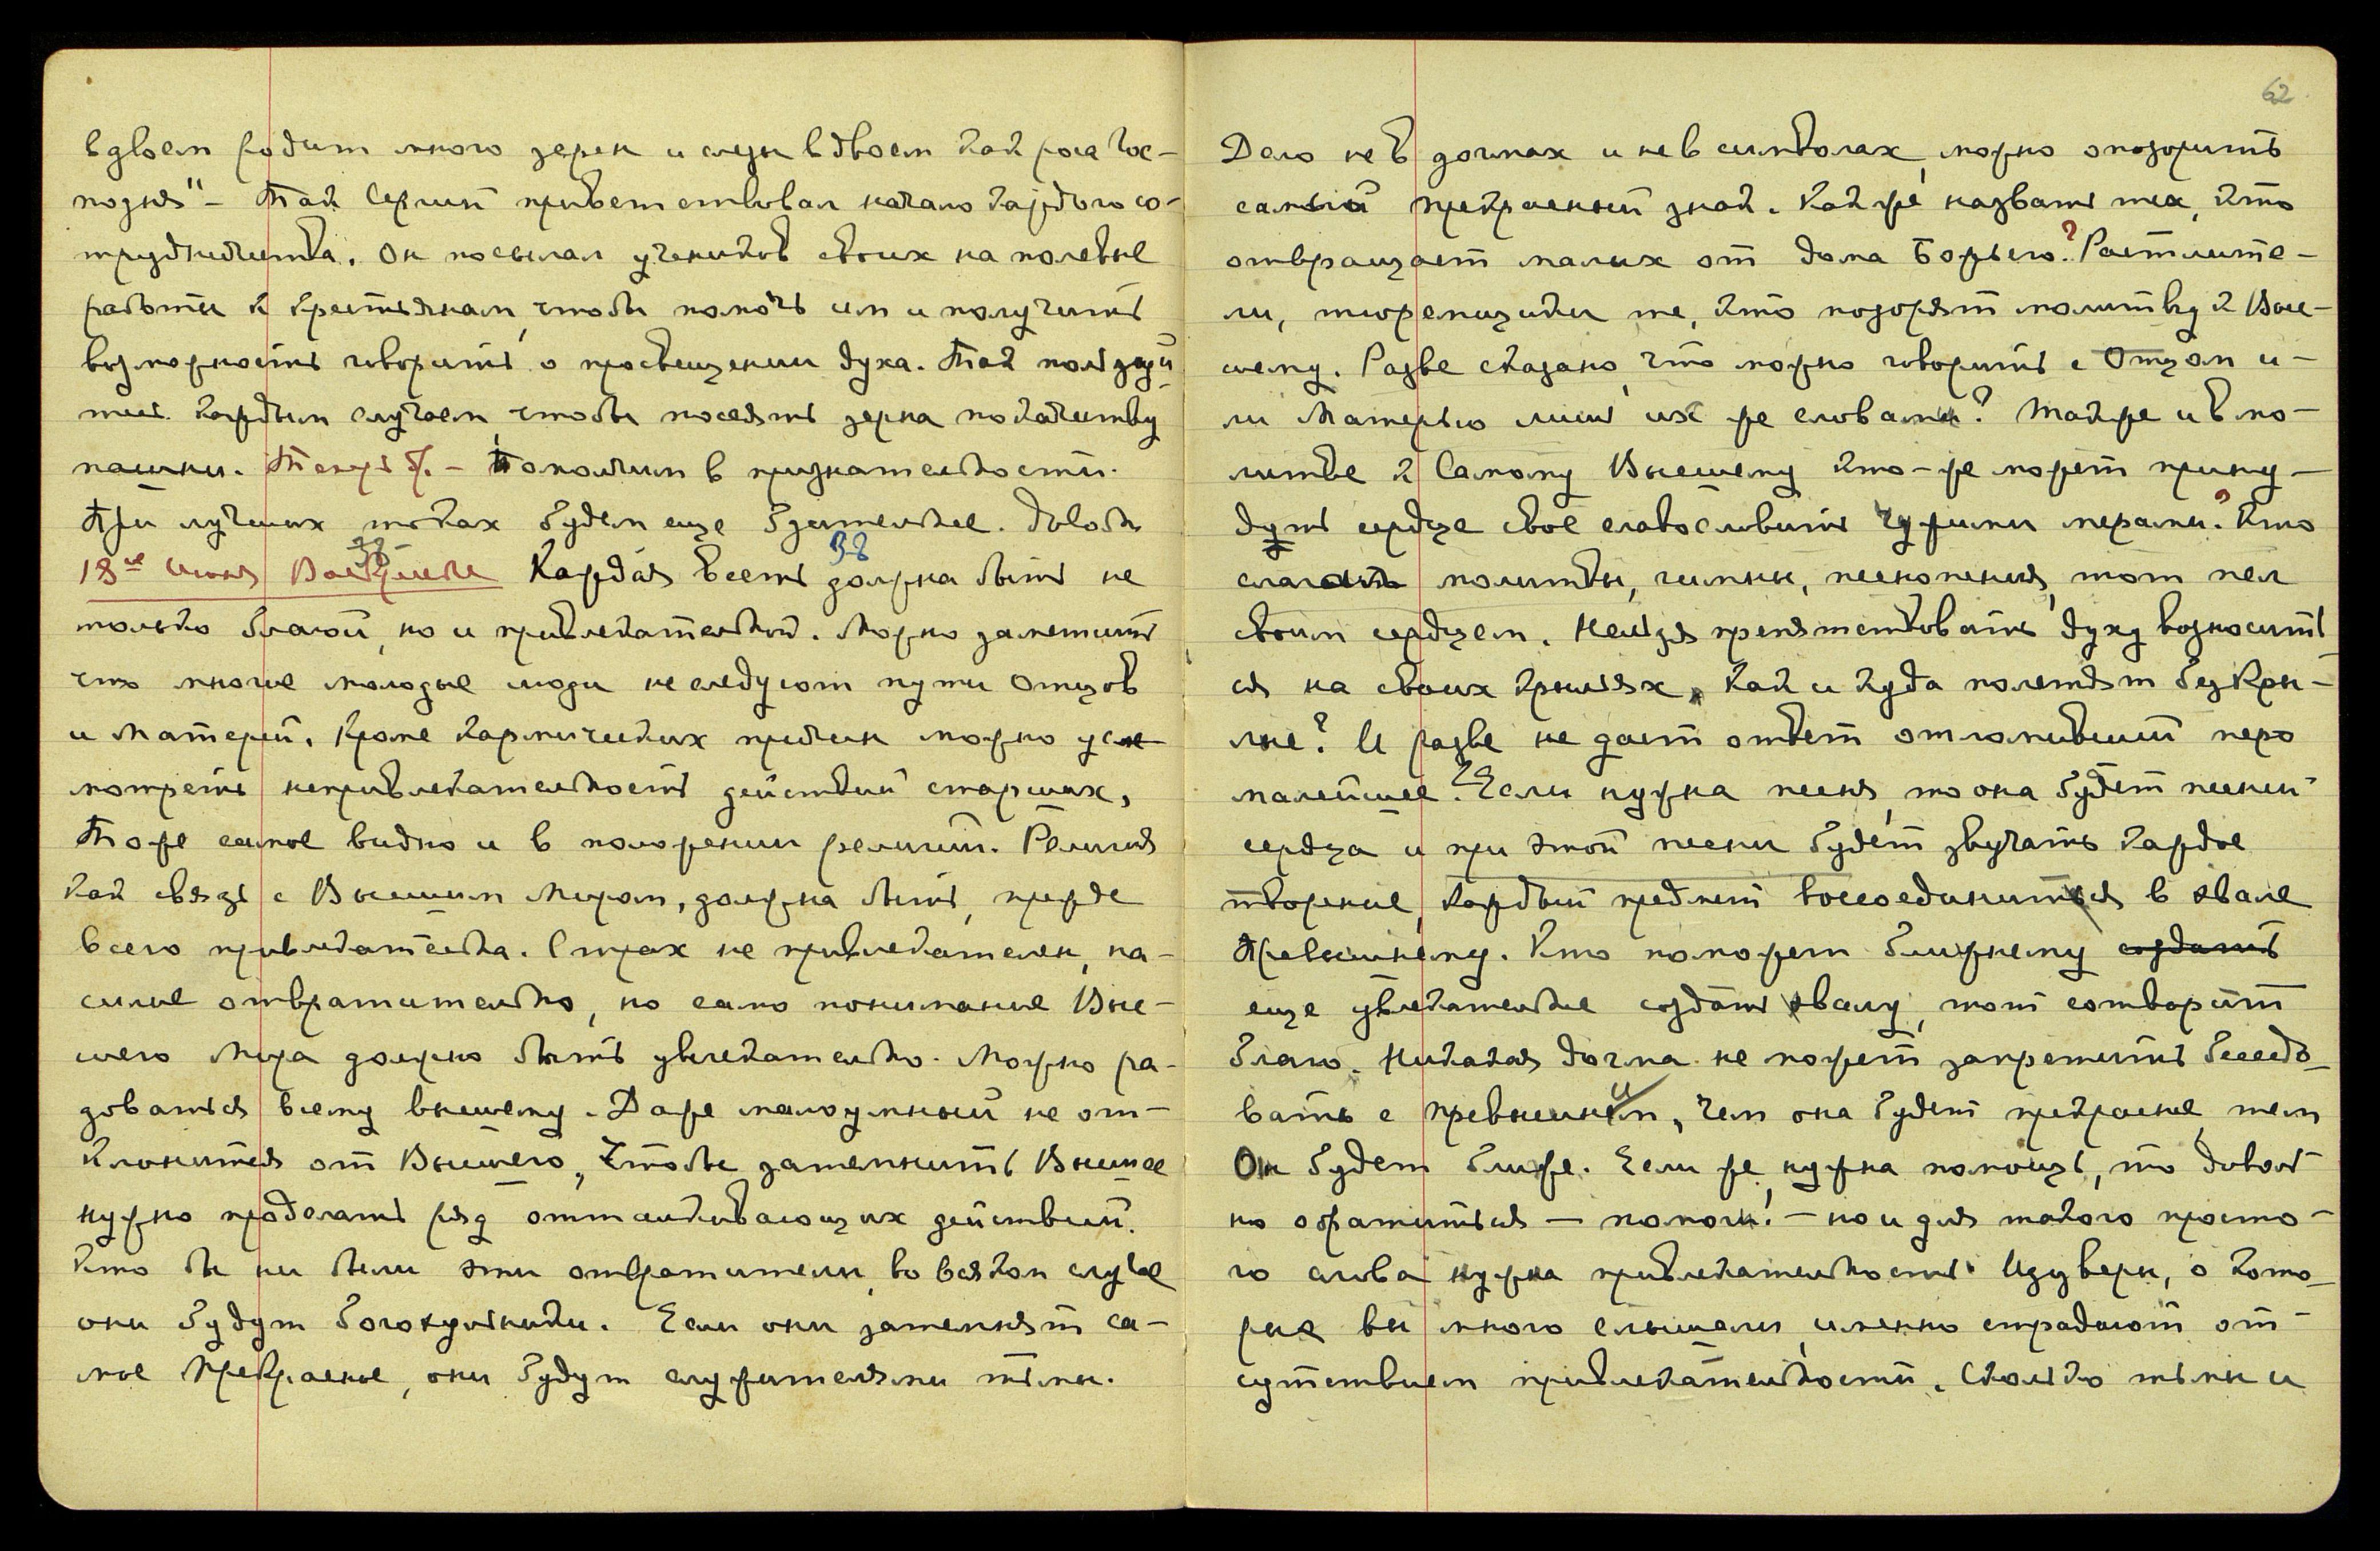 вдвоем родит много зерен и слезы вдвоем как роса Гос-
подня" – Так Сергий приветствовал начало каждого со-
трудничества. Он посылал учеников своих на полевые
работы к крестьянам, чтобы помочь им и получить
возможность говорить о просвещении духа. Так пользуй-
тесь каждым случаем, чтобы посеять зерна по качеству
пашни. – Помолчим в признательности.
При лучших токах будем еще бдительнее. Довольно
18ое Июня Воскресенье 38 Каждая весть должна быть не
только благой, но и привлекательной. Можно заметить
что многие молодые люди не следуют пути Отцов
и Матерей. Кроме кармических причин можно ус-
мотреть непривлекательность действий старших,
То же самое видно и в положении религий. Религия
как связь с Высшим Миром, должна быть, прежде
всего привлекательна. Страх не привлекателен, на-
силие отвратительно, но само понимание Выс-
шего Мира должно быть увлекательно. Можно ра-
доваться всему высшему. Даже малоумный не от-
клонится от Высшего, Чтобы затемнить Высшее
нужно проделать ряд отталкивающих действий.
Кто бы ни были эти отвратители, во всяком случае
они будут богохульники. Если они затемняют са-
мое Прекрасное, они будут служителями тьмы.
62
Дело не в догмах и не в символах, можно опозорить
самый прекрасный знак. Как же назвать тех, кто
отвращает малых от дома Божьего? Растлите-
ли, тюремщики те, кто позорят молитву к Выс-
шему. Разве сказано, что можно говорить с Отцом и-
ли Матерью лишь их же словами? Также и в мо-
литве к Самому Высшему кто-же может прину-
дить сердце свое славословить чужими мерами? Кто
слагать молитвы, гимны, песнопения, тот пел
своим сердцем. Нельзя препятствовать духу возносить-
ся на своих крыльях, Как и куда полетят бескры-
лые? И разве не даст ответ отломивший перо
малейшее? Если нужна песня, то она будет песней
сердца и при этой песни будет звучать каждое
творение, каждый предмет воссоединится в хвале
Превышнему. Кто поможет ближнему создать
еще увлекательнее создать хвалу, тот сотворит
благо. Никакая догма не может запретить беседо-
вать с Превышним, Чем она будет прекраснее, тем
Он будет ближе. Если же нужна помощь, то доволь-
но обратиться – помоги! – но и для такого просто-
го слова нужна привлекательность. Изуверы, о кото-
рые вы много слышали, именно страдают от-
сутствием привлекательности. Сколько тьмы и